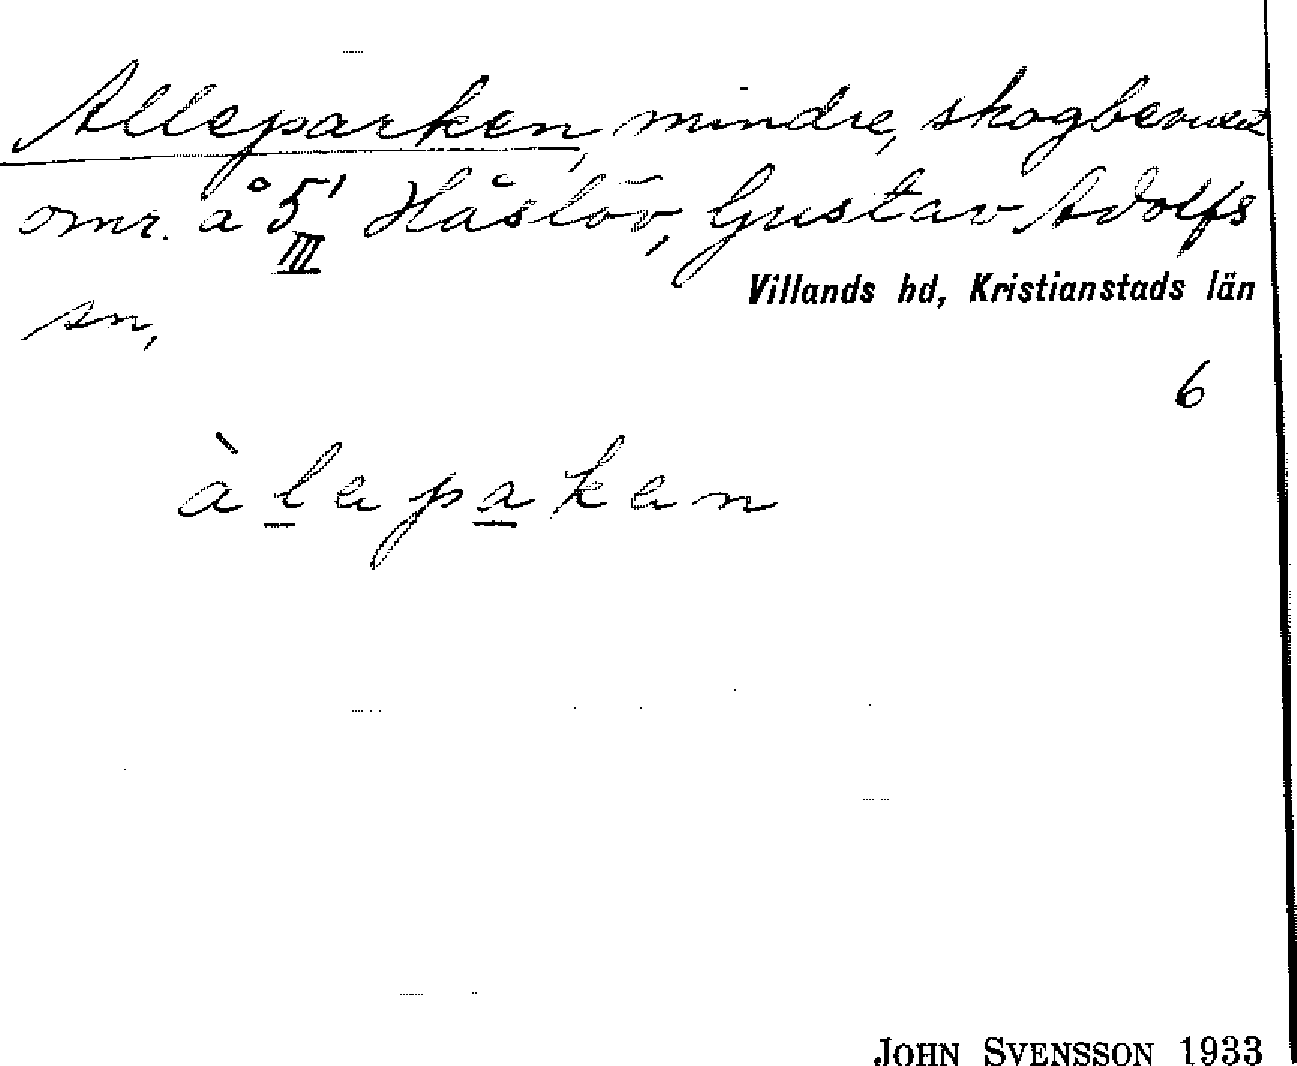 Alleparken, mindre, skogbevuxet
omr. å 5¹ Håslöv, Gustav Adolfs
III
Villands hd, Kristianstads län
sn,
6
àlepaken
JOHN SVENSSON 1933